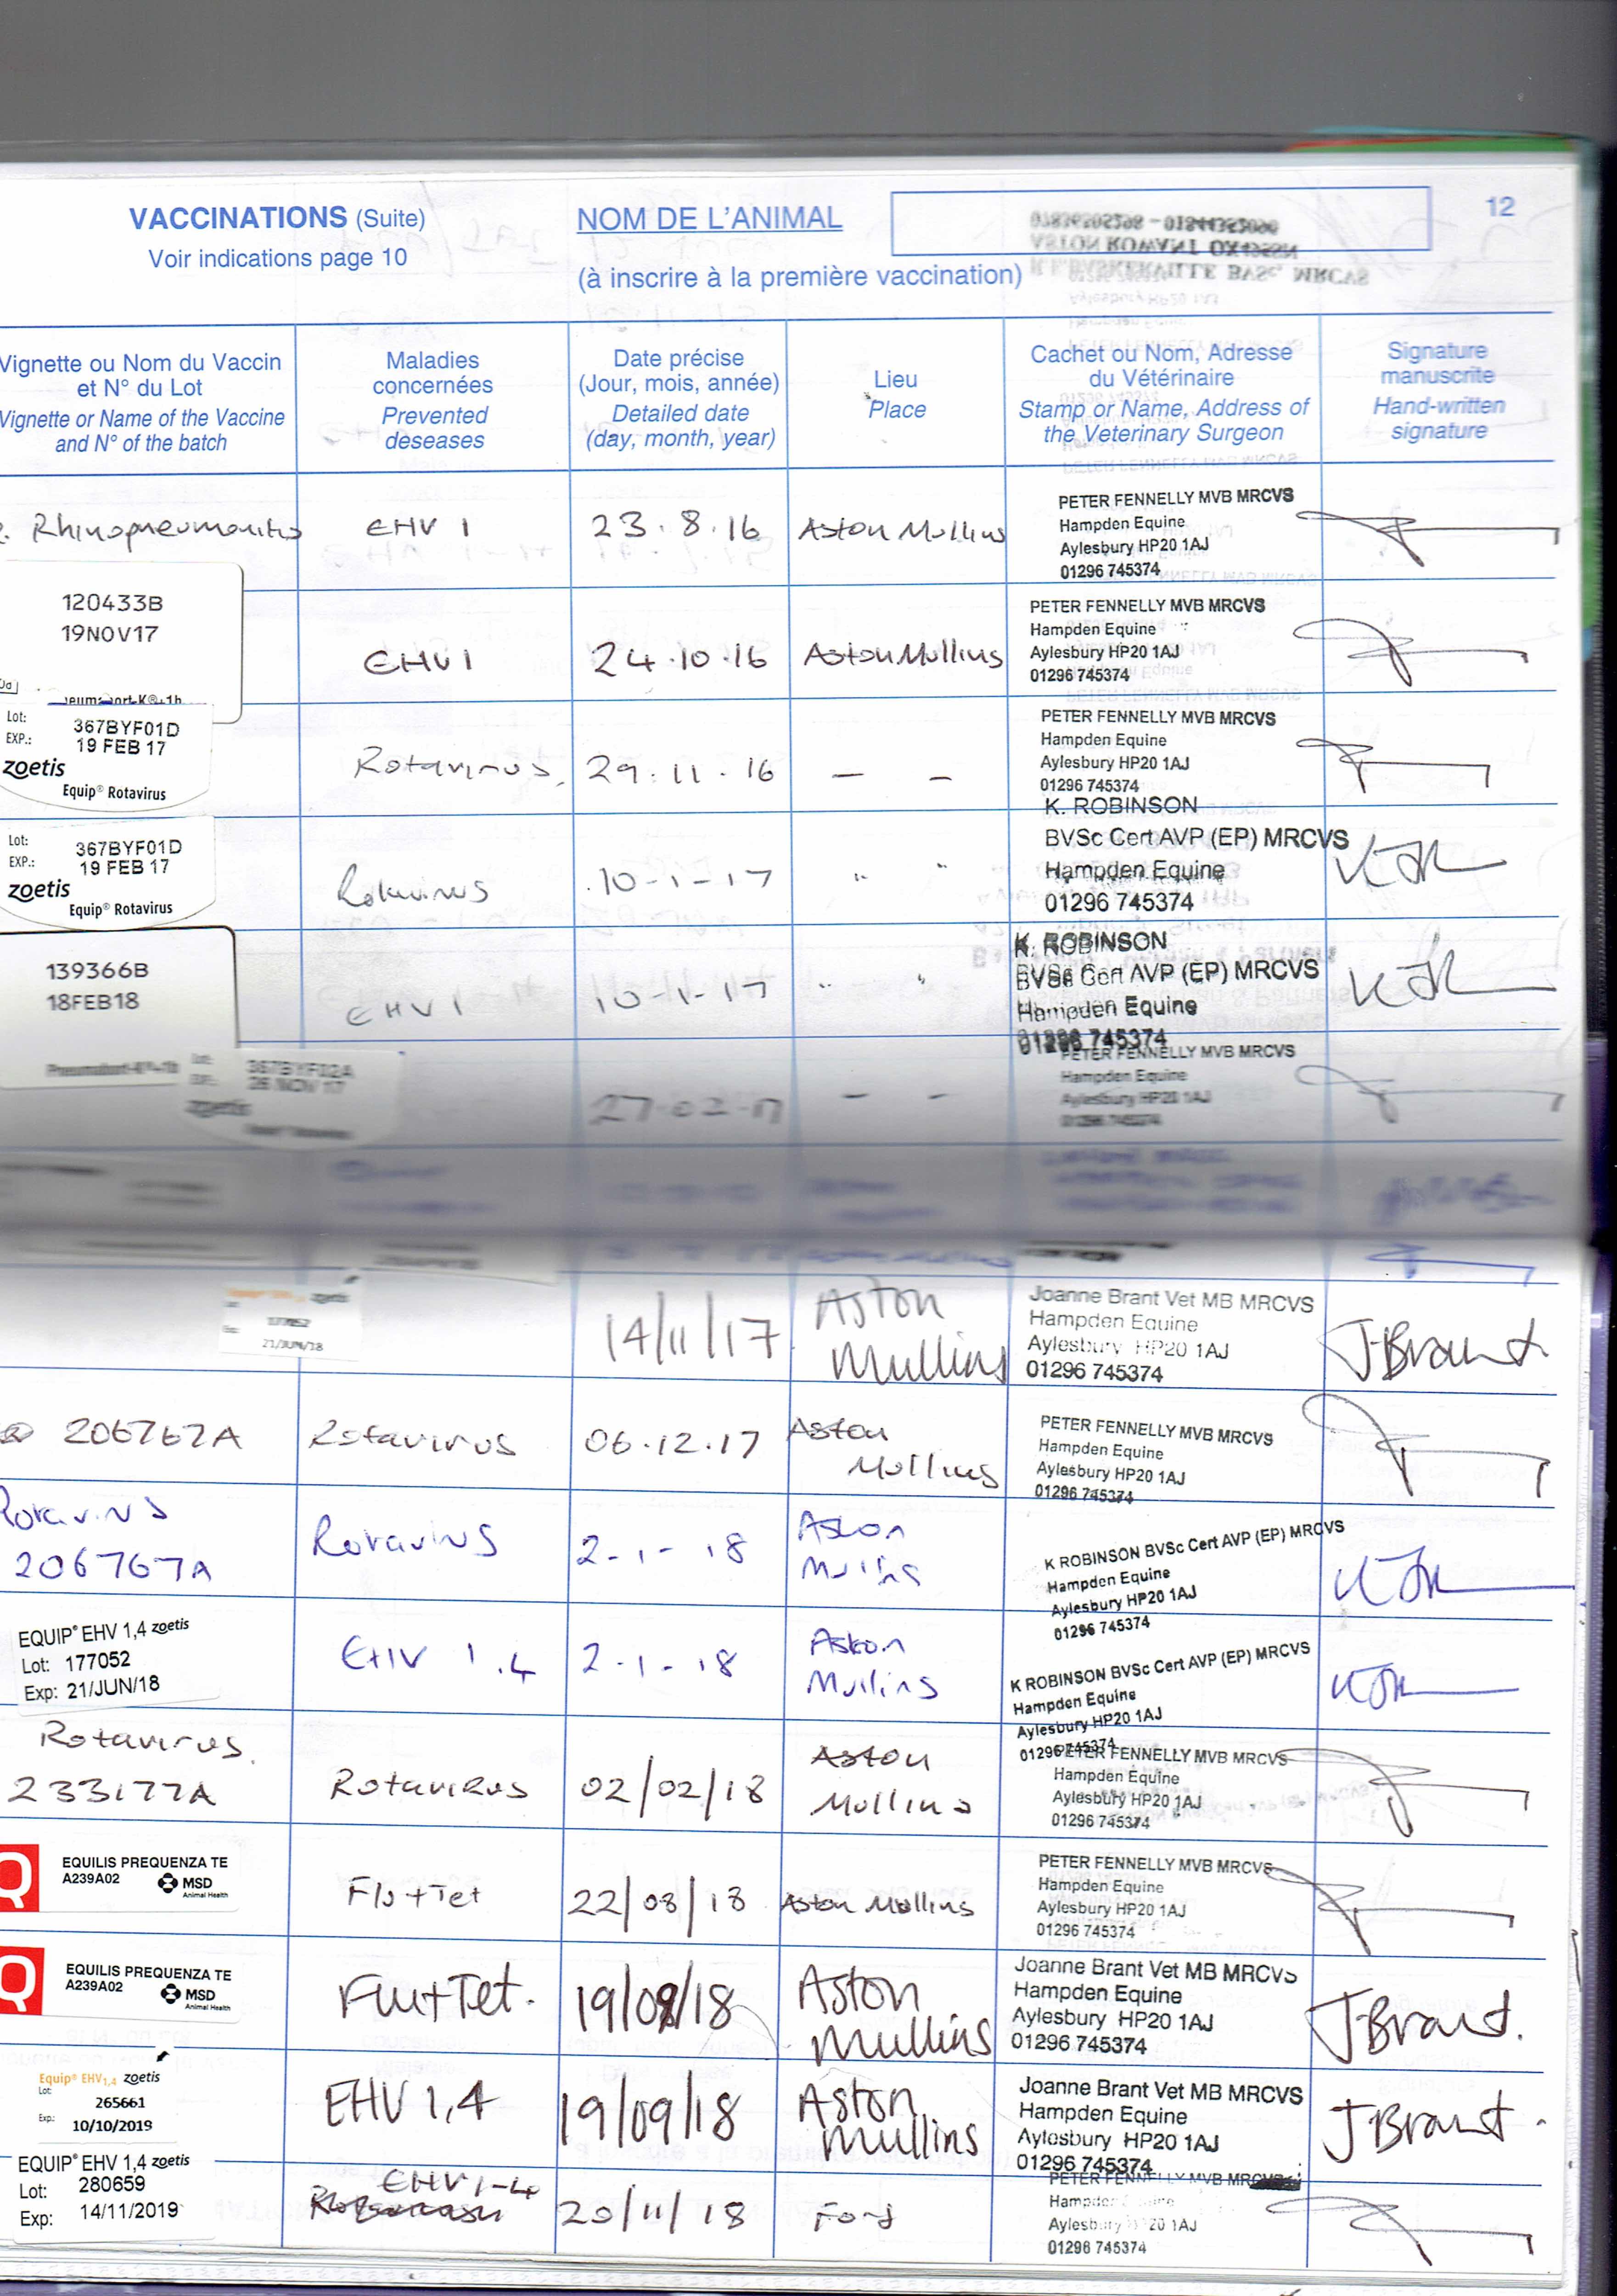 VACCINATIONS (Suite)
Voir indications page 10
NOM DE L'ANIMAL
(à inscrire à la première vaccination)
12
Vignette ou Nom du Vaccin
et N° du Lot
Vignette or Name of the Vaccine
and N° of the batch
Maladies
concernées
Prevented
deseases
Date précise
(Jour, mois, année)
Detailed date
(day, month, year)
Lieu
Place
Cachet ou Nom, Adresse
du Vétérinaire
Stamp or Name, Address of
the Veterinary Surgeon
Signature
manuscrite
Hand-written
signature
Rhinopneumonitis
EHV 1
23.8.16
Aston Mullins
PETER FENNELLY MVB MRCVS
Hampden Equine
Aylesbury HP20 1AJ
01296 745374
120433B
19NOV17
EHV1
24.10.16
Aston Mullins
PETER FENNELLY MVB MRCVS
Hampden Equine
Aylesbury HP20 1AJ
01296 745374
Lot: 367BYF01D
EXP.: 19 FEB 17
zoetis
Equip® Rotavirus
Rotavirus.
29.11.16
— —
PETER FENNELLY MVB MRCVS
Hampden Equine
Aylesbury HP20 1AJ
01296 745374
Lot: 367BYF01D
EXP.: 19 FEB 17
zoetis
Equip® Rotavirus
Rotavirus
10-1-17
" "
K. ROBINSON
BVSc Cert AVP (EP) MRCVS
Hampden Equine
01296 745374
139366B
18FEB18
EHV 1
10-1-17
" "
K. ROBINSON
BVSc Cert AVP (EP) MRCVS
Hampden Equine
01296 745374
367BYF02A
26 NOV 17
zoetis
27-02-17
— —
PETER FENNELLY MVB MRCVS
Hampden Equine
Aylesbury HP20 1AJ
01296 745374
zoetis
177052
21/JUN/18
14/11/17
Aston
Mullins
Joanne Brant Vet MB MRCVS
Hampden Equine
Aylesbury HP20 1AJ
01296 745374
J.Brant.
206767A
Rotavirus
06.12.17
Aston
Mullins
PETER FENNELLY MVB MRCVS
Hampden Equine
Aylesbury HP20 1AJ
01296 745374
Rotavirus
206767A
Rotavirus
2-1-18
Aston
Mullins
K ROBINSON BVSc Cert AVP (EP) MRCVS
Hampden Equine
Aylesbury HP20 1AJ
01296 745374
EQUIP® EHV 1,4 zoetis
Lot: 177052
Exp: 21/JUN/18
EHV 1.4
2-1-18
Aston
Mullins
K ROBINSON BVSc Cert AVP (EP) MRCVS
Hampden Equine
Aylesbury HP20 1AJ
01296 745374
Rotavirus.
233177A
Rotavirus
02/02/18
Aston
Mullins
PETER FENNELLY MVB MRCVS
Hampden Equine
Aylesbury HP20 1AJ
01296 745374
Q
EQUILIS PREQUENZA TE
A239A02
MSD
Animal Health
Flu+Tet
22/08/18
Aston Mullins
PETER FENNELLY MVB MRCVS
Hampden Equine
Aylesbury HP20 1AJ
01296 745374
Q
EQUILIS PREQUENZA TE
A239A02
MSD
Animal Health
Flu+Tet.
19/09/18
Aston
Mullins
Joanne Brant Vet MB MRCVS
Hampden Equine
Aylesbury HP20 1AJ
01296 745374
J.Brant.
Equip® EHV1,4 zoetis
Lot: 265661
Exp: 10/10/2019
EHV 1,4
19/09/18
Aston
Mullins
Joanne Brant Vet MB MRCVS
Hampden Equine
Aylesbury HP20 1AJ
01296 745374
J.Brant.
EQUIP® EHV 1,4 zoetis
Lot: 280659
Exp: 14/11/2019
EHV1-4
20/11/18
Ford
PETER FENNELLY MVB MRCVS
Aylesbury HP20 1AJ
01296 745374